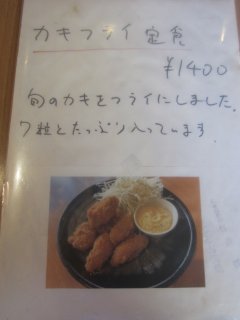 カキフライ定食
¥1400
旬のカキをフライにしました。
7粒とたっぷり入っています。